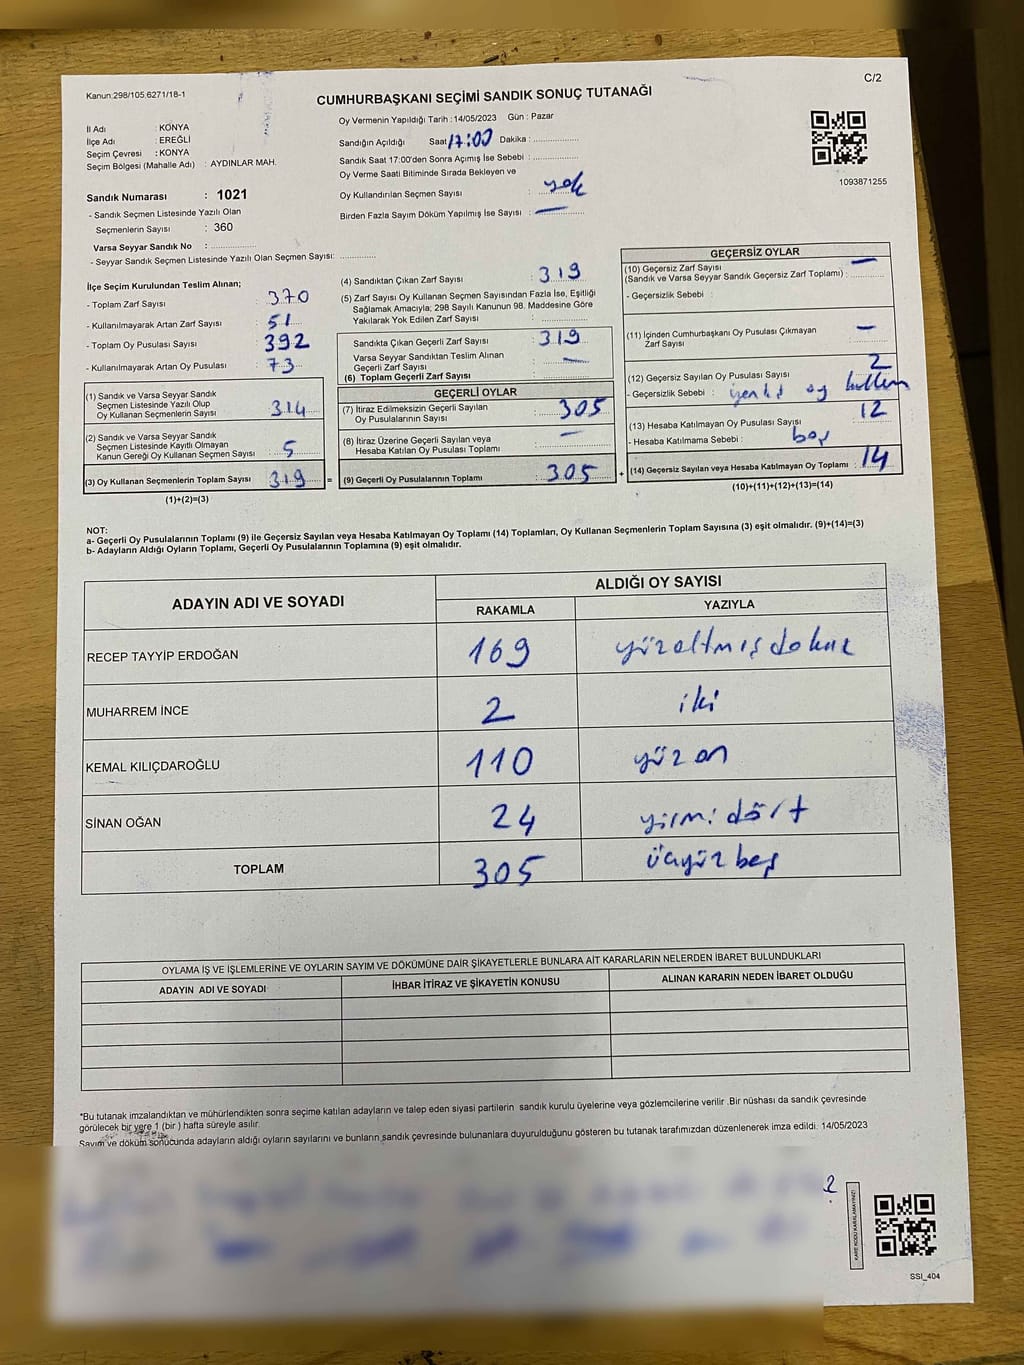 C/2
Kanun:298/105,6271/18-1
CUMHURBAŞKANI SEÇİMİ SANDIK SONUÇ TUTANAĞI
İl Adı : KONYA
İlçe Adı : EREĞLİ
Seçim Çevresi : KONYA
Seçim Bölgesi (Mahalle Adı) : AYDINLAR MAH.
Sandık Numarası : 1021
- Sandık Seçmen Listesinde Yazılı Olan
Seçmenlerin Sayısı : 360
Varsa Seyyar Sandık No : ..............
- Seyyar Sandık Seçmen Listesinde Yazılı Olan Seçmen Sayısı: ............
Oy Vermenin Yapıldığı Tarih : 14/05/2023 Gün : Pazar
Sandığın Açıldığı Saat 17:00 Dakika : ..............
Sandık Saat 17:00'den Sonra Açımış İse Sebebi : ..............
Oy Verme Saati Bitiminde Sırada Bekleyen ve
Oy Kullandırılan Seçmen Sayısı : yok
Birden Fazla Sayım Döküm Yapılmış İse Sayısı : —
1093871255
İlçe Seçim Kurulundan Teslim Alınan;
- Toplam Zarf Sayısı : 370
- Kullanılmayarak Artan Zarf Sayısı : 51
- Toplam Oy Pusulası Sayısı : 392
- Kullanılmayarak Artan Oy Pusulası : 73
(1) Sandık ve Varsa Seyyar Sandık
Seçmen Listesinde Yazılı Olup
Oy Kullanan Seçmenlerin Sayısı : 314
(2) Sandık ve Varsa Seyyar Sandık
Seçmen Listesinde Kayıtlı Olmayan
Kanun Gereği Oy Kullanan Seçmen Sayısı : 5
(3) Oy Kullanan Seçmenlerin Toplam Sayısı : 319 =
(1)+(2)=(3)
(4) Sandıktan Çıkan Zarf Sayısı : 319
(5) Zarf Sayısı Oy Kullanan Seçmen Sayısından Fazla İse, Eşitliği
Sağlamak Amacıyla; 298 Sayılı Kanunun 98. Maddesine Göre
Yakılarak Yok Edilen Zarf Sayısı : ..............
Sandıkta Çıkan Geçerli Zarf Sayısı : 319
Varsa Seyyar Sandıktan Teslim Alınan
Geçerli Zarf Sayısı : —
(6) Toplam Geçerli Zarf Sayısı
GEÇERLİ OYLAR
(7) İtiraz Edilmeksizin Geçerli Sayılan
Oy Pusulalarının Sayısı : 305
(8) İtiraz Üzerine Geçerli Sayılan veya
Hesaba Katılan Oy Pusulası Toplamı : —
(9) Geçerli Oy Pusulalarının Toplamı : 305 +
GEÇERSİZ OYLAR
(10) Geçersiz Zarf Sayısı
(Sandık ve Varsa Seyyar Sandık Geçersiz Zarf Toplamı) : —
- Geçersizlik Sebebi :
(11) İçinden Cumhurbaşkanı Oy Pusulası Çıkmayan
Zarf Sayısı : —
(12) Geçersiz Sayılan Oy Pusulası Sayısı : 2
- Geçersizlik Sebebi : oy
(13) Hesaba Katılmayan Oy Pusulası Sayısı : 12
- Hesaba Katılmama Sebebi : boş
(14) Geçersiz Sayılan veya Hesaba Katılmayan Oy Toplamı : 14
(10)+(11)+(12)+(13)=(14)
NOT:
a- Geçerli Oy Pusulalarının Toplamı (9) ile Geçersiz Sayılan veya Hesaba Katılmayan Oy Toplamı (14) Toplamları, Oy Kullanan Seçmenlerin Toplam Sayısına (3) eşit olmalıdır. (9)+(14)=(3)
b- Adayların Aldığı Oyların Toplamı, Geçerli Oy Pusulalarının Toplamına (9) eşit olmalıdır.
ADAYIN ADI VE SOYADI
ALDIĞI OY SAYISI
RAKAMLA YAZIYLA
RECEP TAYYİP ERDOĞAN 169 yüzaltmışdokuz
MUHARREM İNCE 2 iki
KEMAL KILIÇDAROĞLU 110 yüzon
SİNAN OĞAN 24 yirmidört
TOPLAM 305 üçyüzbeş
OYLAMA İŞ VE İŞLEMLERİNE VE OYLARIN SAYIM VE DÖKÜMÜNE DAİR ŞİKAYETLERLE BUNLARA AİT KARARLARIN NELERDEN İBARET BULUNDUKLARI
ADAYIN ADI VE SOYADI İHBAR İTİRAZ VE ŞİKAYETİN KONUSU ALINAN KARARIN NEDEN İBARET OLDUĞU
*Bu tutanak imzalandıktan ve mühürlendikten sonra seçime katılan adayların ve talep eden siyasi partilerin sandık kurulu üyelerine veya gözlemcilerine verilir .Bir nüshası da sandık çevresinde
görülecek bir yere 1 (bir ) hafta süreyle asılır.
Sayım ve döküm sonucunda adayların aldığı oyların sayılarını ve bunların sandık çevresinde bulunanlara duyurulduğunu gösteren bu tutanak tarafımızdan düzenlenerek imza edildi. 14/05/2023
KARE KODU KARALAMAYINIZ!
SSI_404